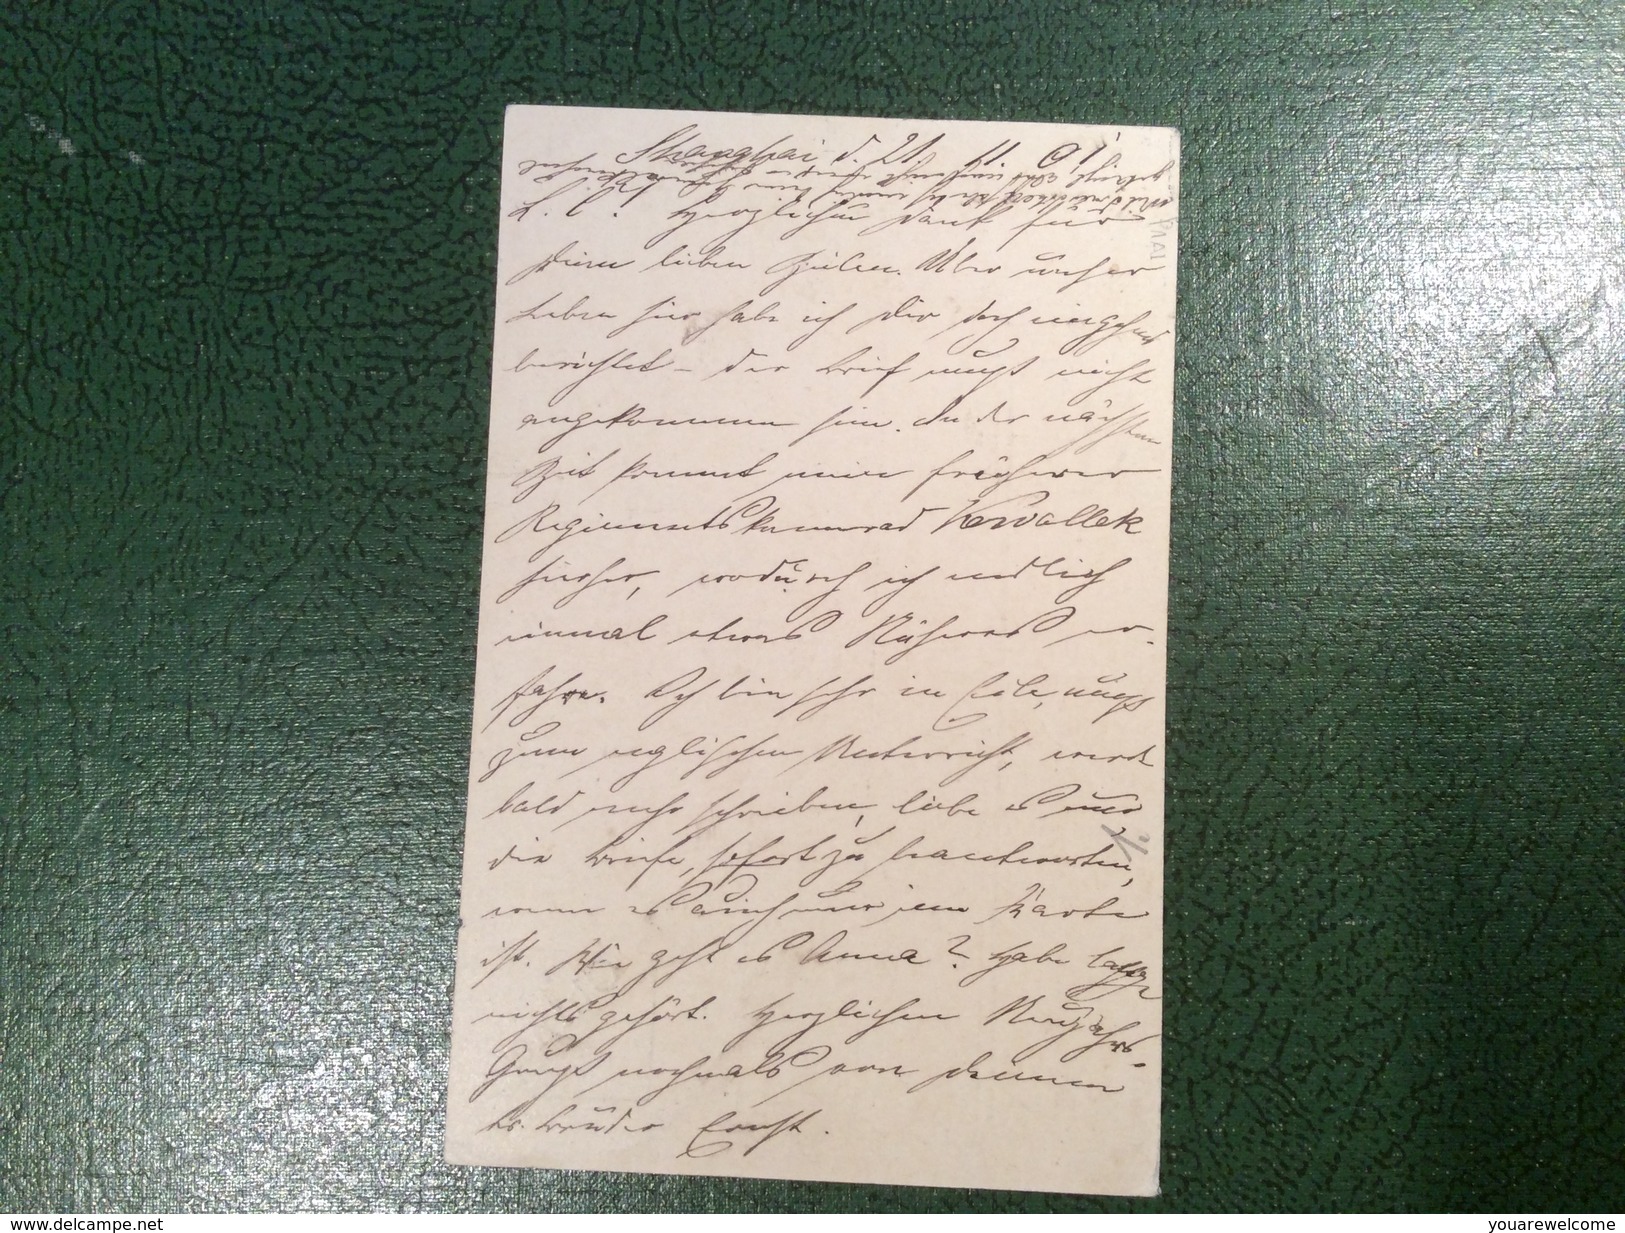 Shanghai d. 21. 11. 01
L. C.! Herzlichen Dank für
Deine lieben Zeilen. Über unser
Leben hier habe ich Dir doch eingehend
berichtet – der Brief muß nicht
angekommen sein. In der nächsten
Zeit kommt mein früherer
Regimentskamerad Kowallek
hierher, wodurch ich endlich
einmal etwas Näheres er-
fahre. Ich bin sehr in Eile, muß
zum englischen Unterricht, werde
bald mehr schreiben, liebe es nur
die Briefe, sofort zu beantworten,
wenn es auch nur eine Karte
ist. Wie geht es Anna? Habe lange
nichts gehört. Herzlichen Neujahrs-
Gruß nochmals von Deinem
tr. Bruder Ernst.
delcampe.net
youarewelcome